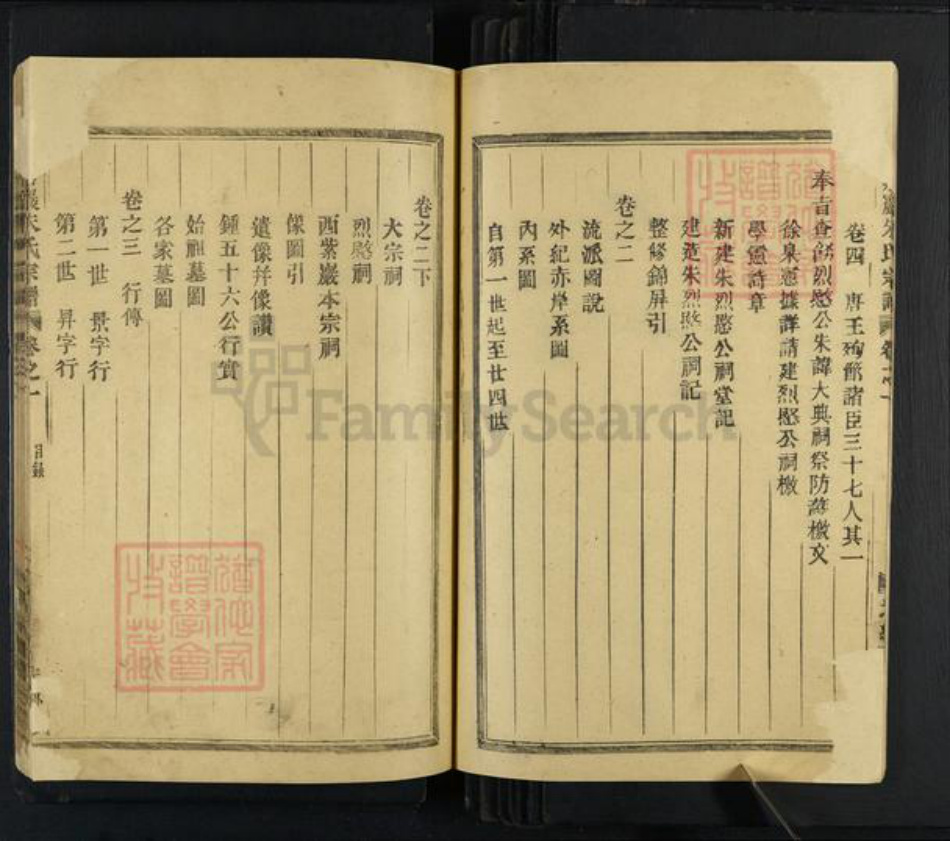 卷四 唐王殉節諸臣三十七人其一
奉旨查郡烈愍公朱諱大典祠祭防護檄文
徐臬憲據詳請建烈愍公祠檄
學憲詩章
新建朱烈愍公祠堂記
建造朱烈愍公祠記
整修錦屏引
卷之二
流派圖說
外紀赤岸系圖
內系圖
自第一世起至廿四世
卷之二下
大宗祠
烈愍祠
西紫巖本宗祠
像圖引
遺像并像讚
鍾五十六公行實
始祖墓圖
各家墓圖
卷之三 行傳
第一世 景字行
第二世 昇字行
巖朱氏宗譜 卷之一 目錄
譜學會
特藏
FamilySearch